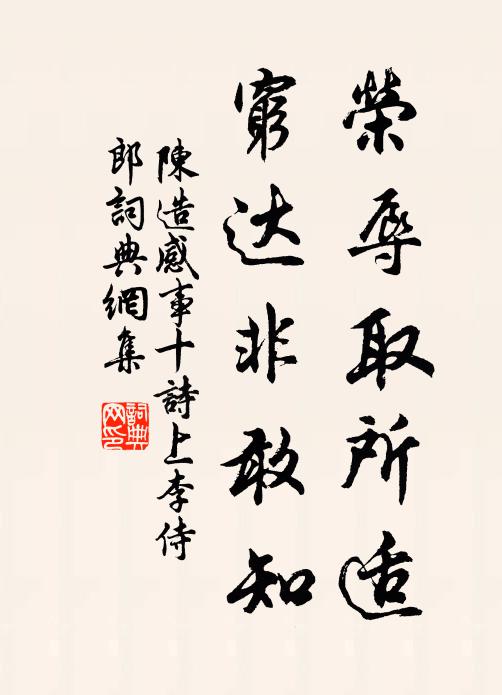 榮辱取所适
窮达非敢知
陳造感事十詩上李侍
郎詞典網集
詞典网印